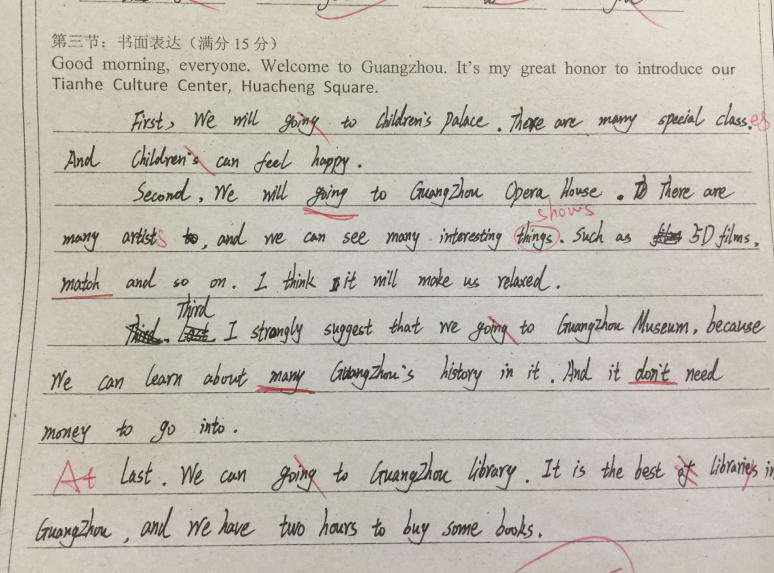 第三节：书面表达（满分 15 分）
Good morning, everyone. Welcome to Guangzhou. It's my great honor to introduce our
Tianhe Culture Center, Huacheng Square.
First, We will going to children's palace. There are many special class.es
And Children's can feel happy.
Second, We will going to GuangZhou Opera House. There are
shows
many artists, and we can see many interesting things. Such as 5D films,
match and so on. I think it will make us relaxed.
Third
Third. Last I strongly suggest that we going to GuangZhou Museum, because
We can learn about many GuangZhou's history in it. And it don't need
money to go into.
At Last. We can going to GuangZhou library. It is the best of libraries in
GuangZhou, and We have two hours to buy some books.